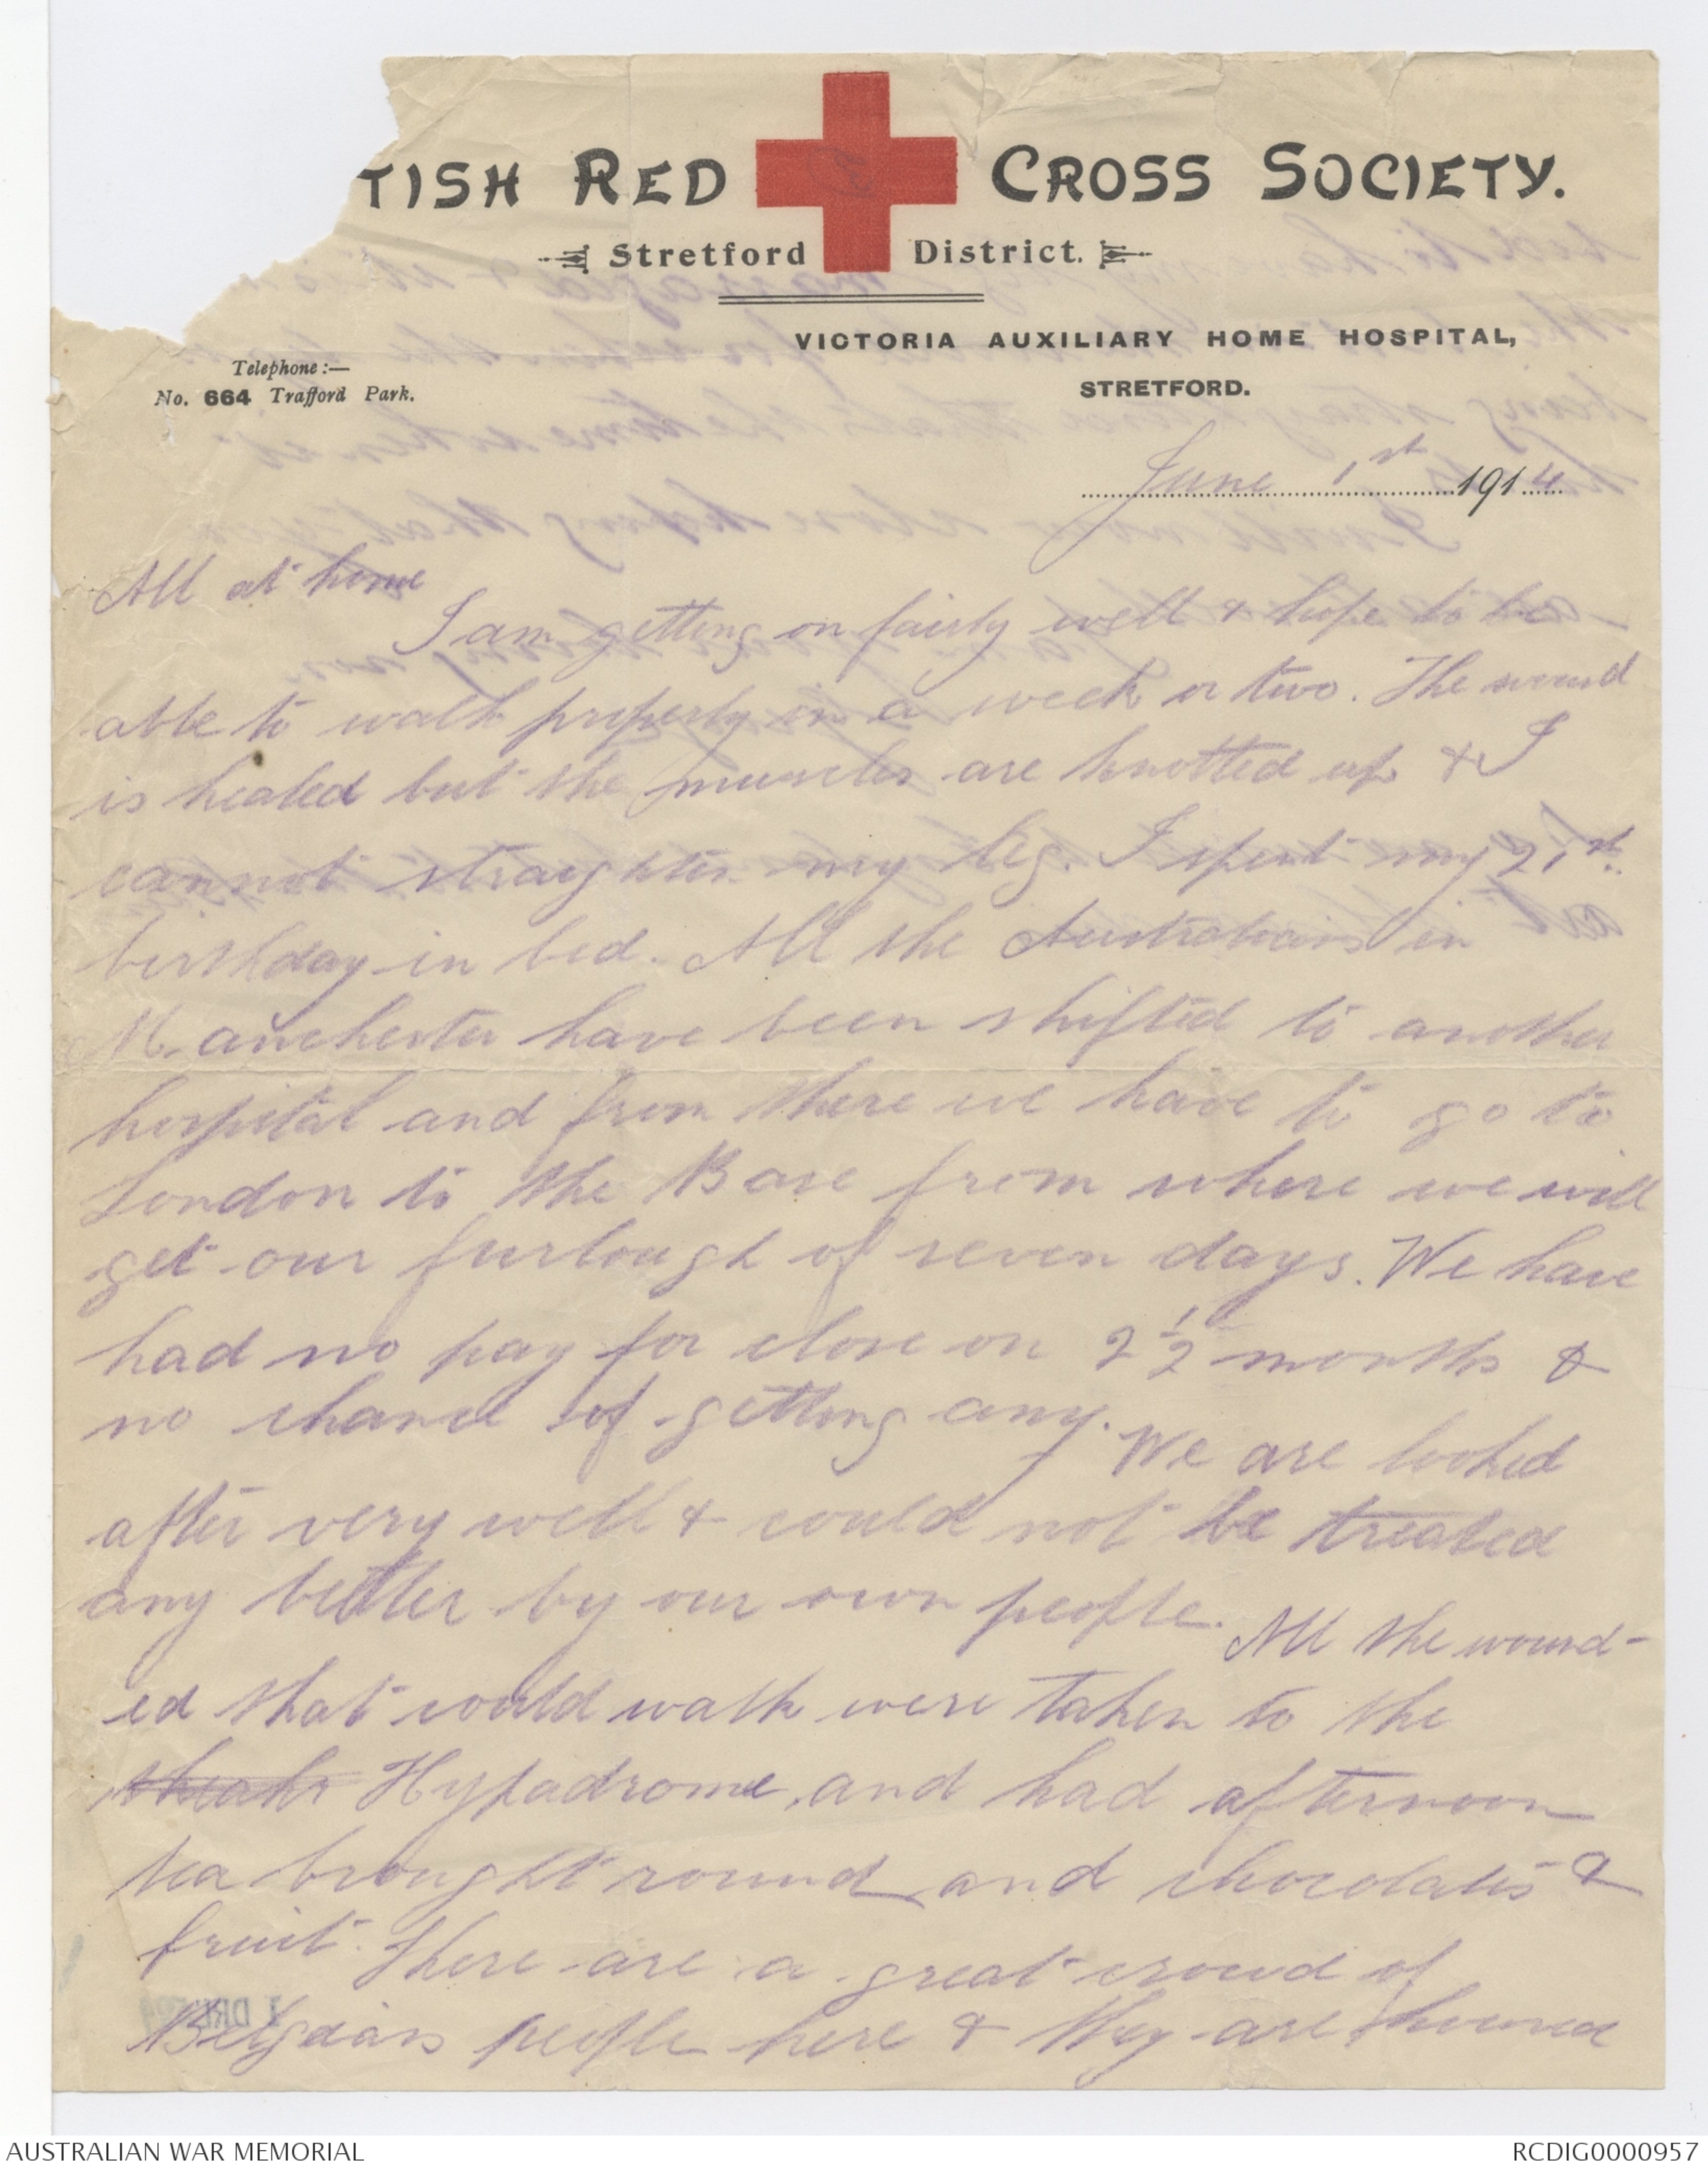 TISH RED CROSS SOCIETY.
Stretford District.
VICTORIA AUXILIARY HOME HOSPITAL,
STRETFORD.
Telephone:—
No. 664 Trafford Park.
June 1st 1914
All at home
I am getting on fairly well & hope to be
able to walk properly in a week or two. The wound
is healed but the muscles are knotted up & I
cannot straighten my leg. I spent my 21st.
birthday in bed. All the Australians in
Manchester have been shifted to another
hospital and from there we have to go to
London to the Base from where we will
get our furlough of seven days. We have
had no pay for close on 2 1/2 months &
no chance of getting any. We are looked
after very well & could not be treated
any better by our own people. All the wound-
ed that could walk were taken to the
Hypadrome, and had afternoon
tea brought round and chocolates &
fruit. There are a great crowd of
Belgians people here & they are housed
AUSTRALIAN WAR MEMORIAL
RCDIG0000957